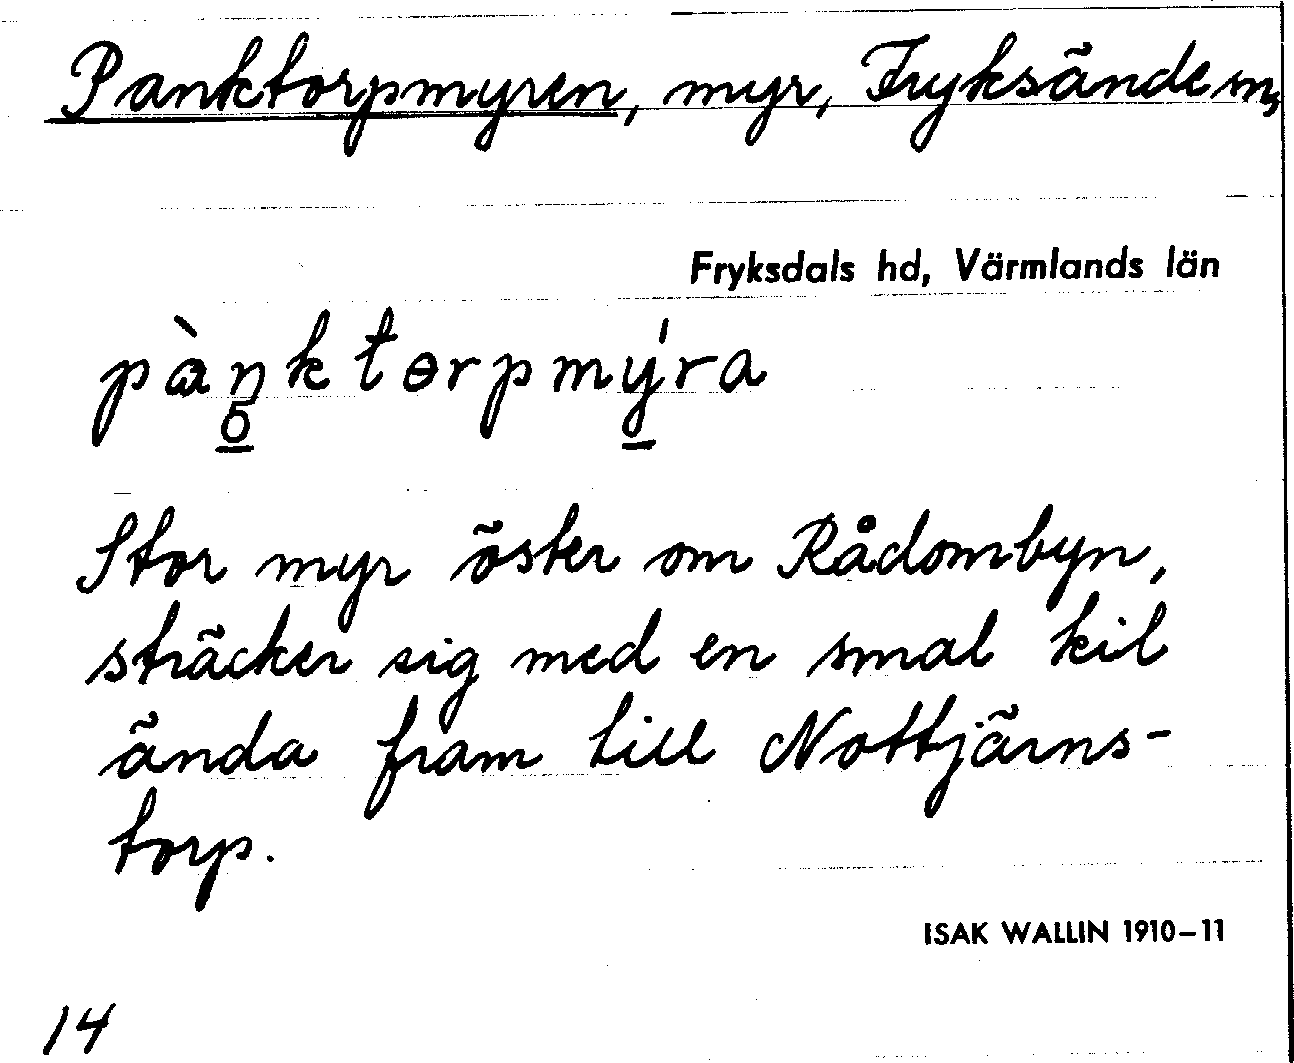 Panktorpmyren, myr, Fryksände sn,
Fryksdals hd, Värmlands län
pàŋktɵrpmýra
Stor myr öster om Rådombyn,
sträcker sig med en smal kil
ända fram till Nottjärns-
torp.
ISAK WALLIN 1910–11
14